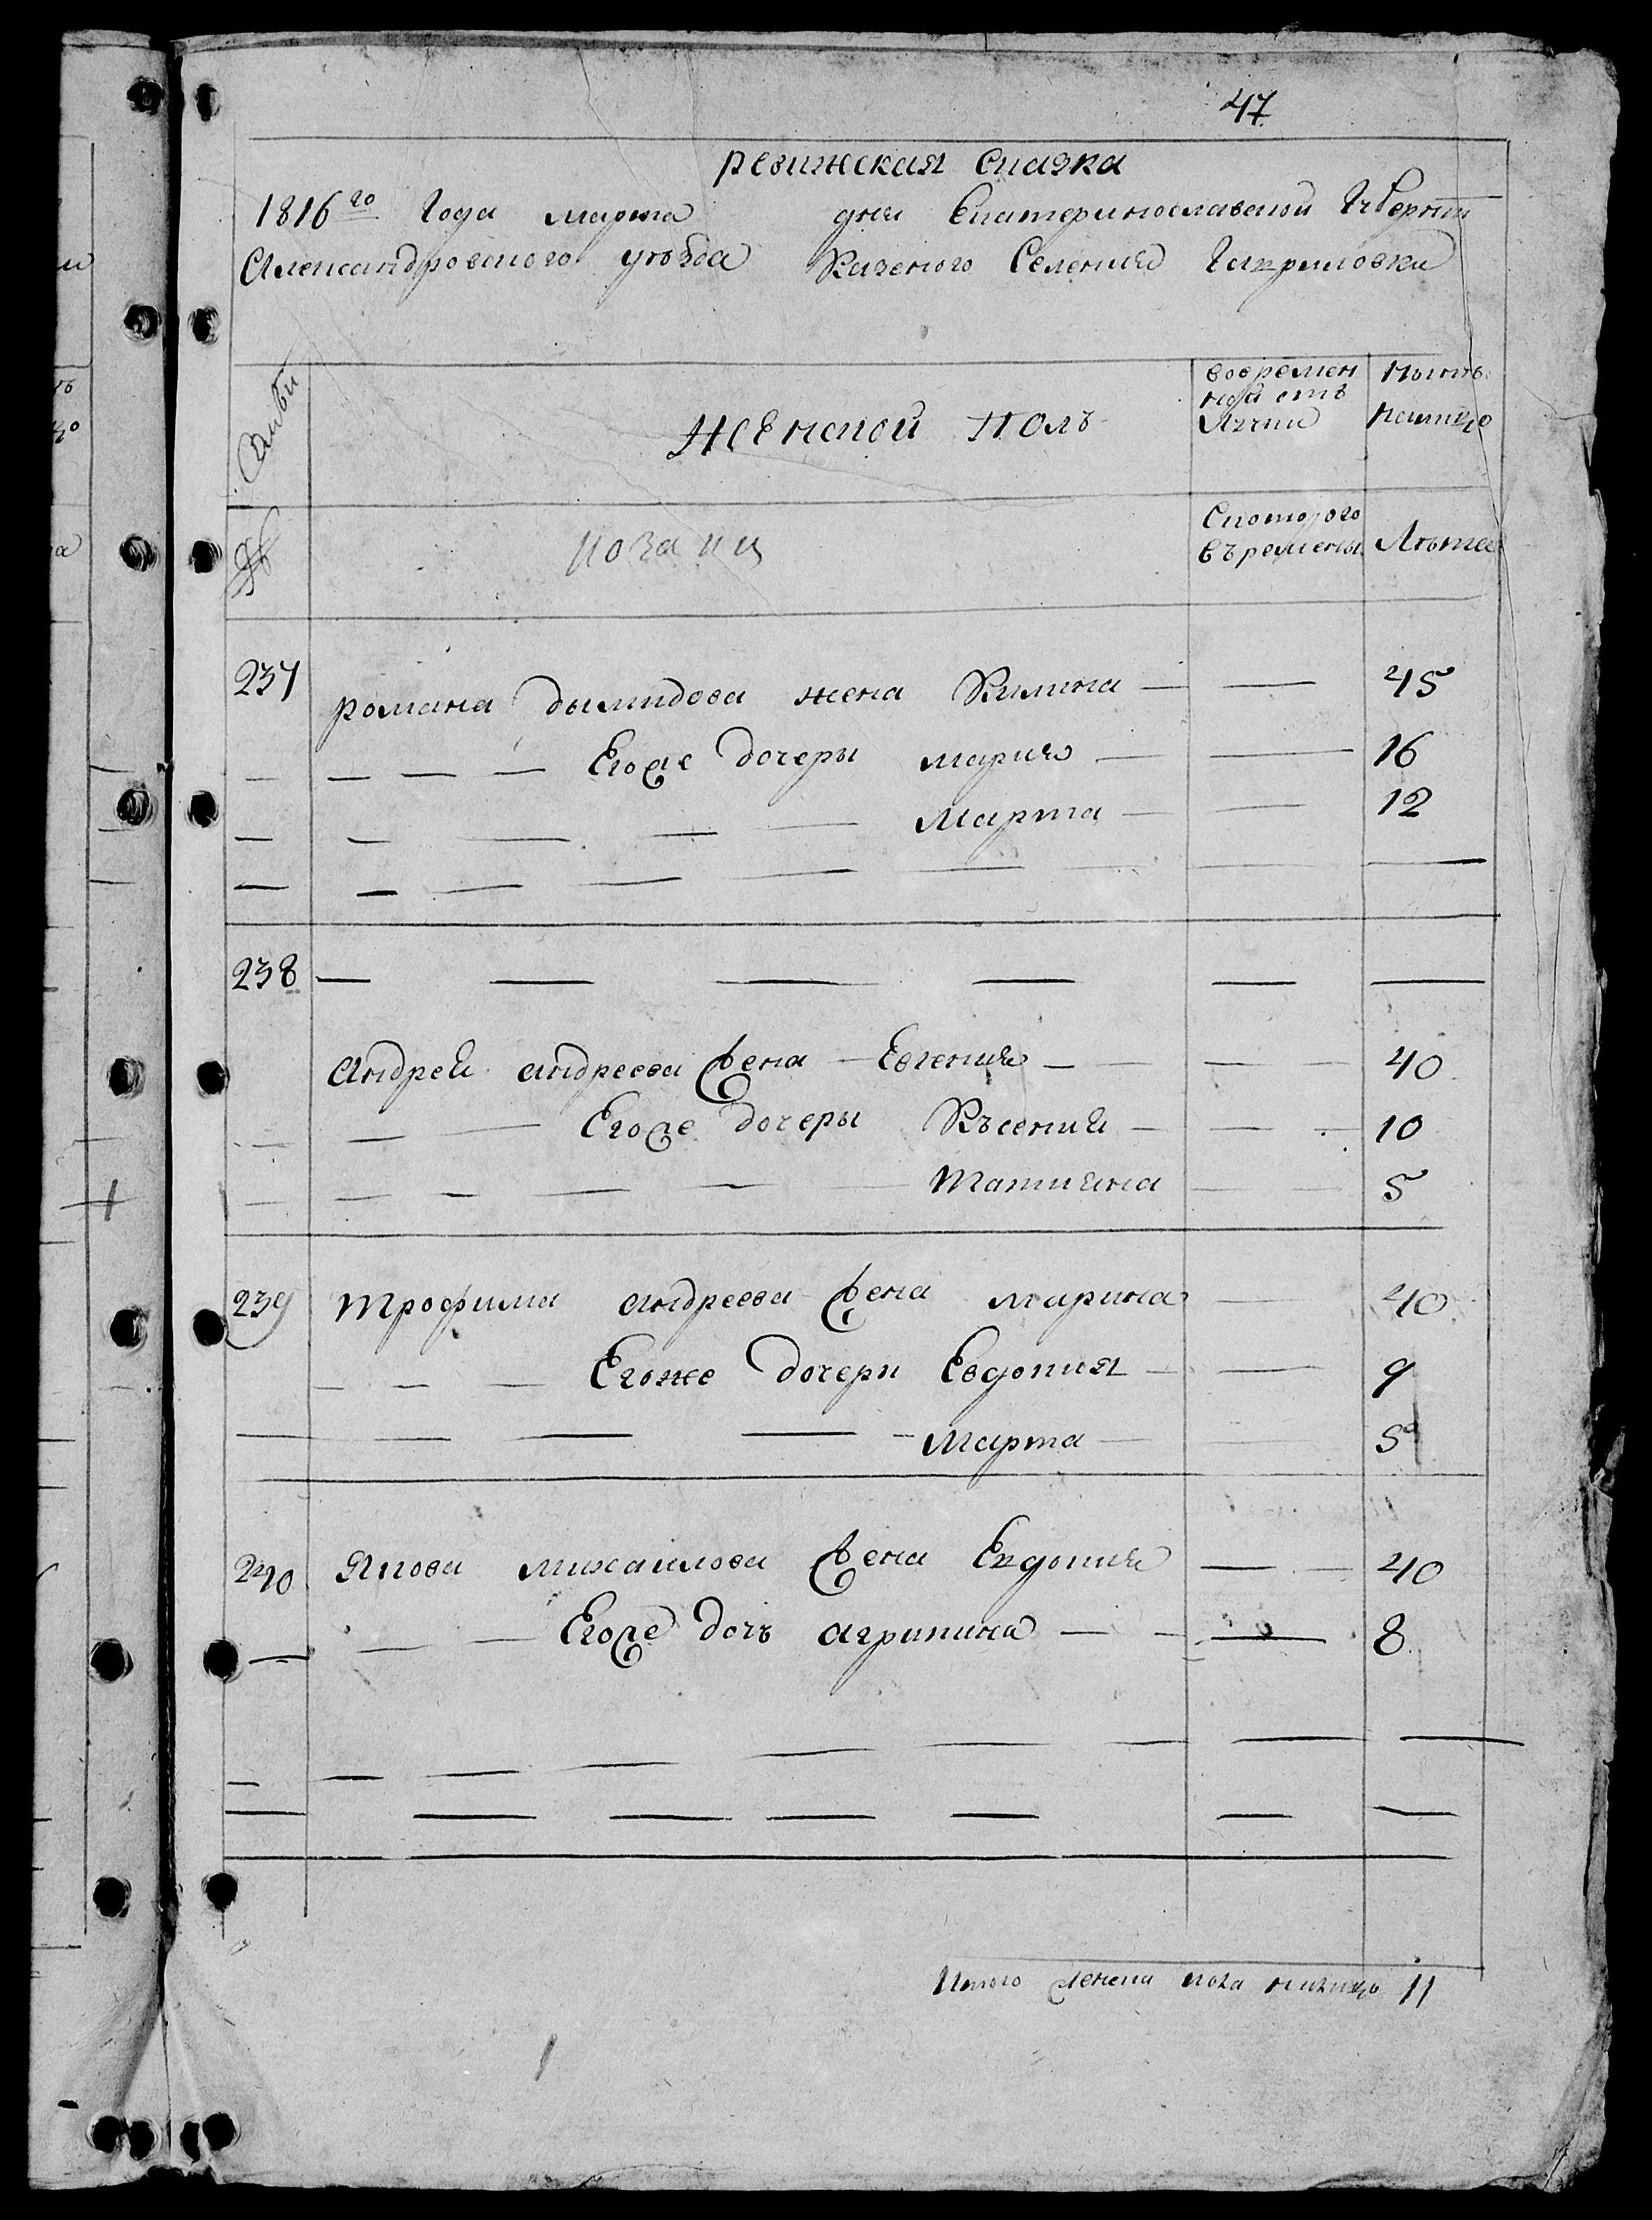 47
ревижская Сказка
1816го Года марта дня Екатеринославской Губернии
Александровского уезда Казеного Селения Гавриловки
Семьи
Женской полъ
вовремен
ной отъ
лучки
Нынѣ
налицо
№
козаки
Скоторого
въремены
Лѣта
237 романа дымидова жена Килина — — 45
— — — — Егоже дочеры мария — — 16
— — — — — Марта — — 12
238 — — — — — —
андрей андреева жена — Евгения — — — 40
— — — Егоже дочеры Къسения — — — 10
— — — — — Татияна — — 5
239 трофима андреева жена марина — 40
— — — Егоже дочери Евдокия — — 9
— — — — — Марта — — 5
240 Якова михаилова жена Евдокия — — 40
— — Егоже дочь агрипина — — — 8
Итого женска пола налицо 11